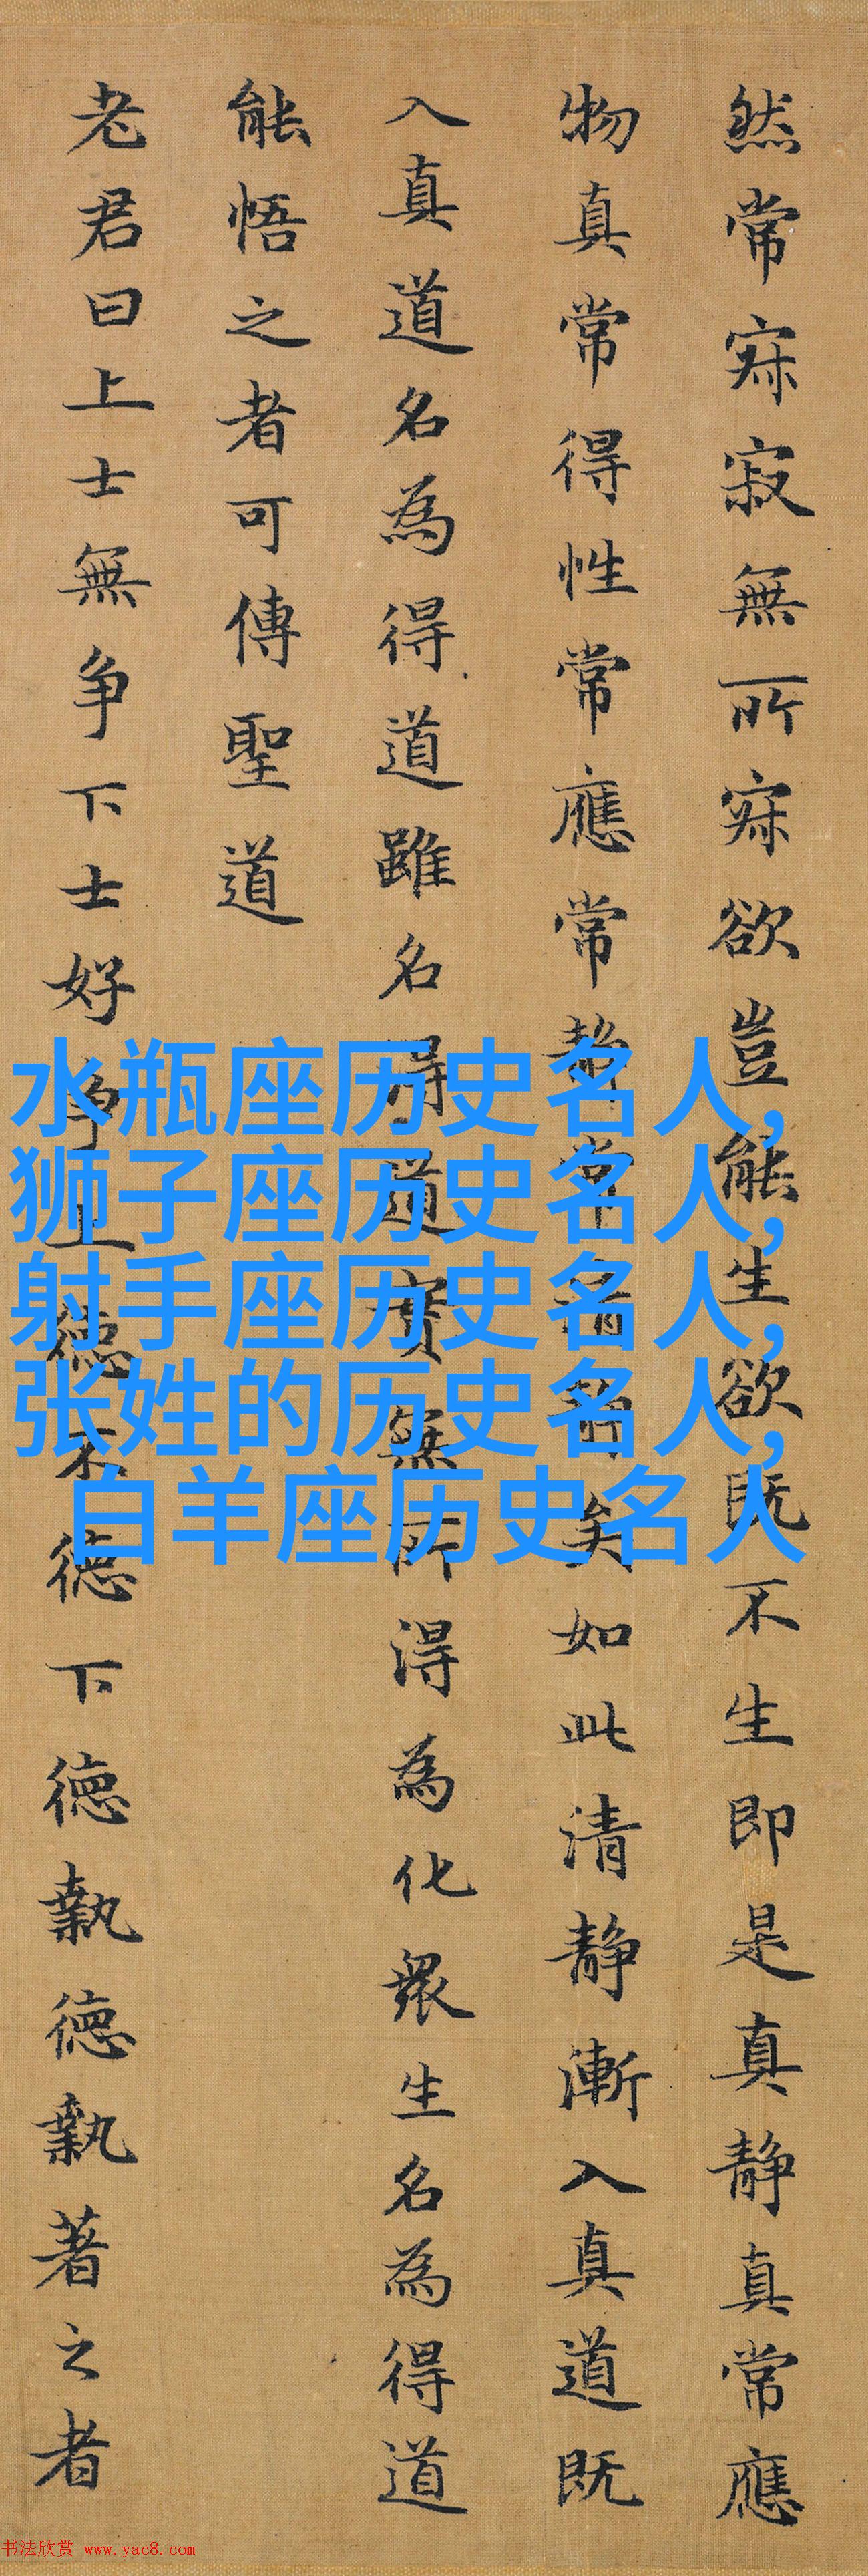 然常寂寂無所寂欲豈能生欲既不生即是真静真常應
物真常得性常應常静常清静矣如此清静漸入真道既
入真道名為得道雖名得道實無所得為化衆生名為得道
能悟之者可傳聖道
老君曰上士無争下士好争上德不德下德執德執著之者
水瓶座历史名人,
狮子座历史名人,
射手座历史名人,
张姓的历史名人,
白羊座历史名人
书法欣赏 www.yac8.com